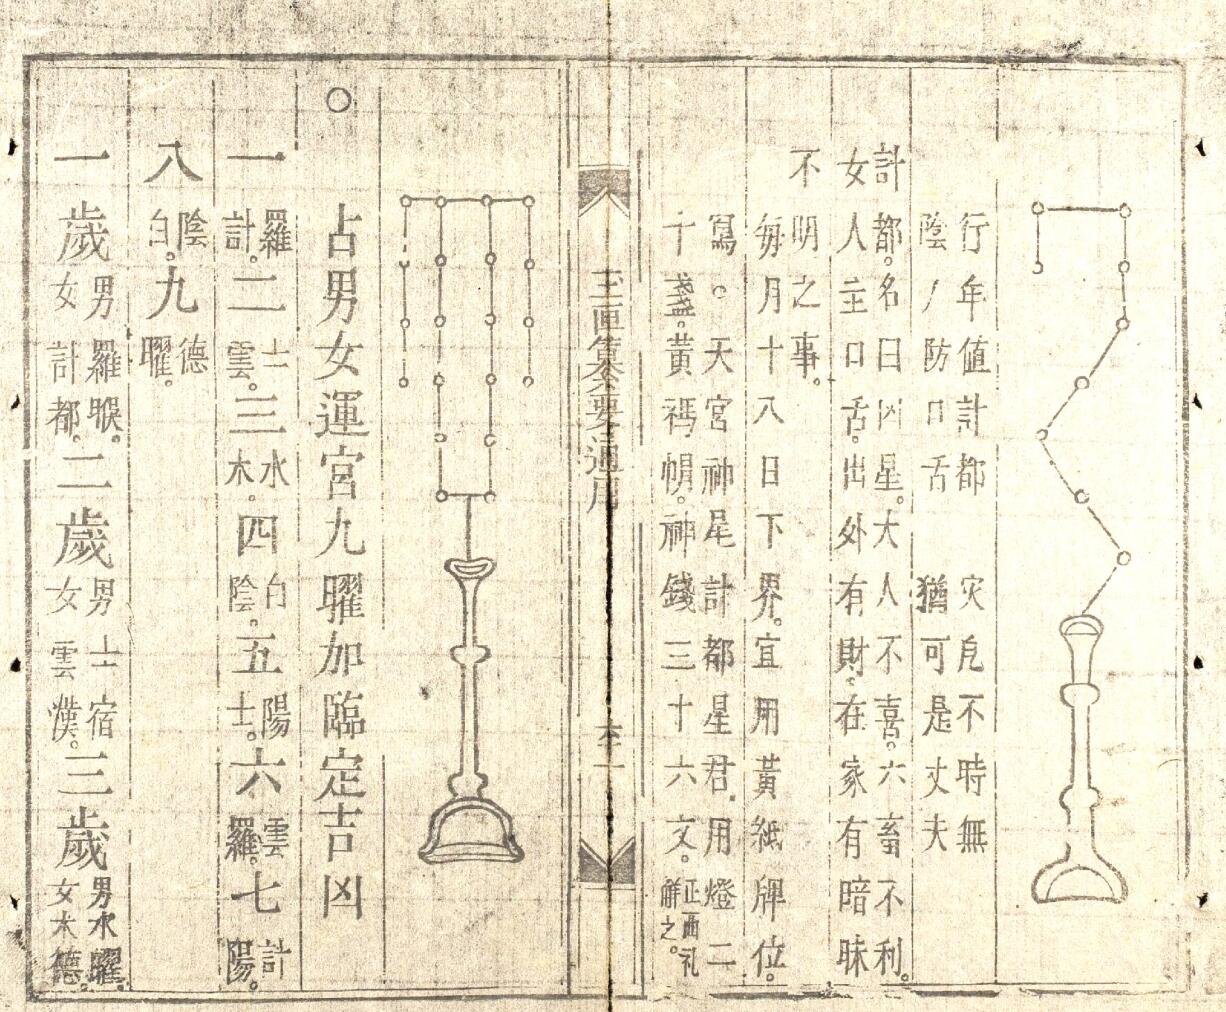 行年值計都　灾危不時無
陰人防口舌　猶可是丈夫
計都。名曰凶星。大人不喜。六畜不利。
女人主口舌。出外有財。在家有暗昧
不明之事。
每月十八日下界。宜用黃紙牌位。
寫。天宮神星計都星君。用燈二
十盞。黃禡㡌。神錢三十六文。正西礼觧之。
玉匣纂要通用
○占男女運宮九曜加臨定吉凶
一羅計。二土雲。三水木。四白陰。五陽土。六雲羅。七計陽。
八陰白。九德曜。
一歲男羅睺。女計都。二歲男土宿女雲漢。三歲男水曜。女木德。